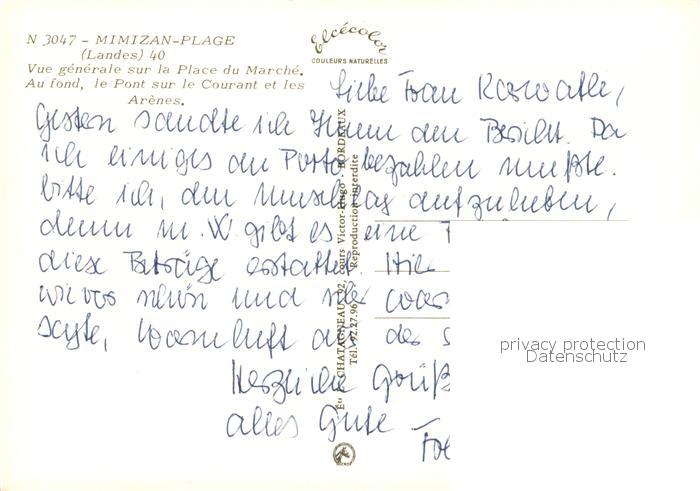 N 3047 - MIMIZAN-PLAGE
(Landes) 40
Vue générale sur la Place du Marché.
Au fond, le Pont sur le Courant et les
Arènes.
Elcécolor
COULEURS NATURELLES
Liebe Frau
Gestern sandte ich Ihnen den Bericht. Da
ich einiges an Porto bezahlen mußte.
bitte ich, den Umschlag aufzuheben,
denn in W. gibt es eine
diese Beträge erstattet. Hier
wie vor schön und sehr
sagte, Warmluft aus des S
Herzliche Grüß
alles Gute -
CHATAGNEAU, 92, cours Victor-Hugo - BORDEAUX
Tél. 92.27.96 Reproduction interdite
privacy protection
Datenschutz